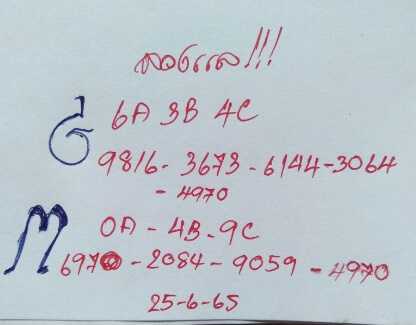 ลองแล!!!
6A 3B 4C
9816 - 3673 - 6144 - 3064
- 4970
M 0A - 4B - 9C
6970 - 2084 - 9059 - 4970
25-6-65